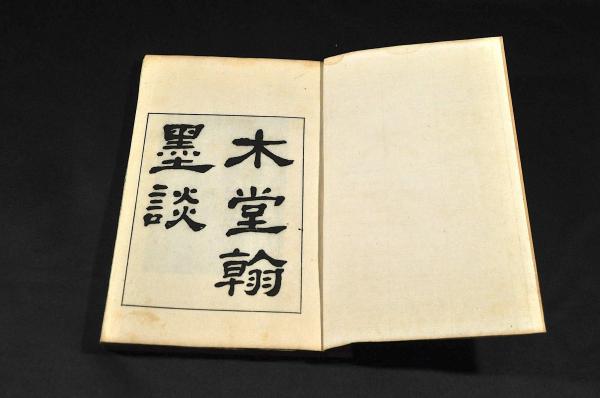 木堂翰
墨談